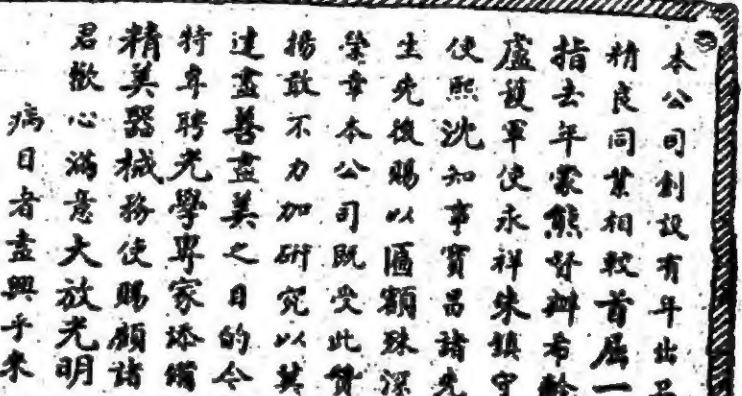 本公司創設有年出品
精良同業相較首屈一
指去年蒙熊督辦希齡
盧護軍使永祥朱鎮守
使熙沈知事寶昌諸先
生先後賜以匾額殊深
榮幸本公司既受此贊
揚敢不力加研究以其
達盡善盡美之目的今
特卑聘光學專家添備
精美器械務使賜顧諸
君歡心滿意大放光明
病目者盍興乎來